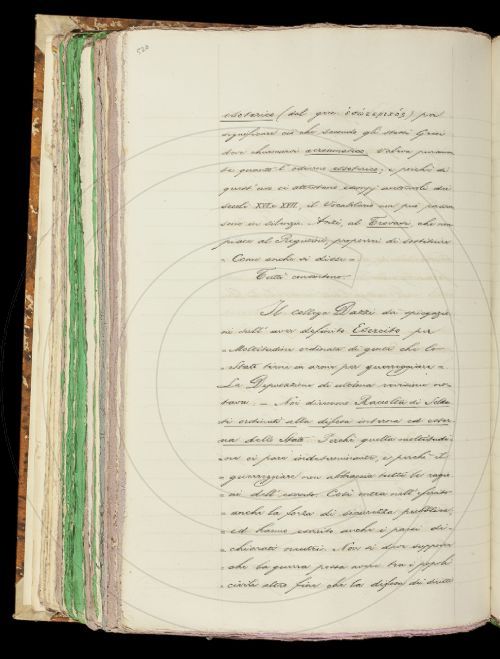 520
esoterico (dal grec. ἐσωτερικός) per
significare ciò che secondo gli stessi Greci
deve chiamarsi acroamatico, valeva presumi-
be quanto l'odierno essoterico; e perchè di
quest'uso ci attestano esempj autorevoli dei
secoli XVI e XVII, il Vocabolario non può passar-
sene in silenzio. Anzi, al Trovasi, che non
piace al Puglisi, proporrei di sostituire
= Come anche si disse =
Tutti consentono.
Il collega Dazzi dà spiegazio-
ni dell'aver definito Esercito per
= Moltitudine ordinata di gente che lo
Stato tiene in armi per guerreggiare =
La Deputazione di ultima revisione no-
tava: = Noi diremmo Raccolta di Solda-
ti ordinati alla difesa interna ed ester-
na dello Stato. Perchè quella moltitudi-
ne ci pare indeterminata, e perchè il
guerreggiare non abbraccia tutte le ragio-
ni dell'esercito. Così entra nell'esercito
anche la forza di sicurezza pubblica,
ed hanno esercito anche i paesi di-
chiarati neutri. Non si deve supporre
che la guerra possa avere tra i popoli
civili altro fine che la difesa di diritti